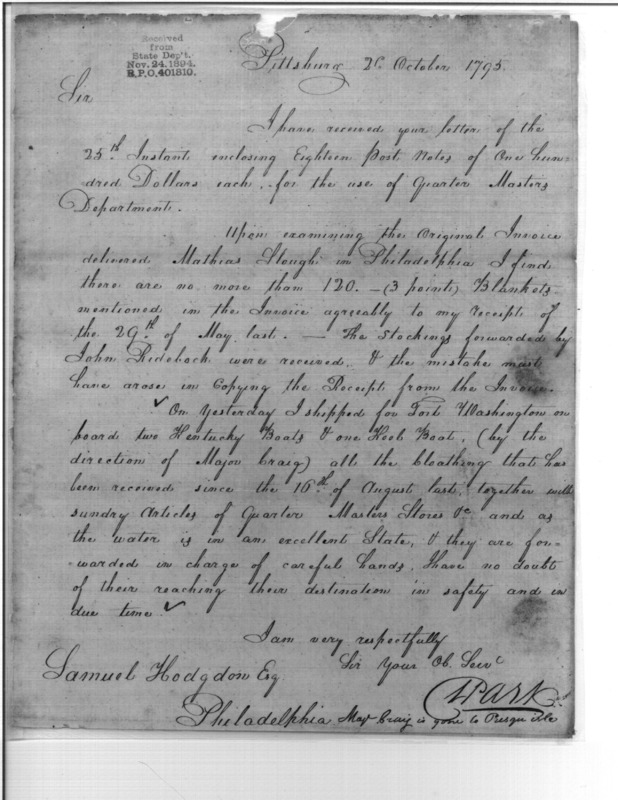 Received
from
State Dep't.
Nov. 24. 1894.
R.P.O. 401810.
Pittsburg 26 October 1795.
Sir
I have received your letter of the
25th Instant enclosing Eighteen Post Notes of One hun-
dred Dollars each, for the use of Quarter Masters
Department.
Upon examining the Original Invoice
delivered Mathias Slough in Philadelphia I find
there are no more than 120. — (3 point) Blankets
mentioned in the Invoice agreeably to my receipt of
the 29th of May last. — The Stockings forwarded by
John were received, & the mistake must
have arose in Copying the Receipt from the Invoice.
On Yesterday I shipped for Fort Washington on
board two Kentucky Boats & one Keel Boat, (by the
direction of Major Craig) all the Cloathing that has
been received since the 16th of August last, together with
sundry Articles of Quarter Masters Stores &c and as
the water is in an excellent State, & they are for=
warded in charge of careful hands, I have no doubt
of their reaching their destination in safety and in
due time.
I am very respectfully
Sir Your Ob. Servt
Samuel Hodgdon Esq
Philadelphia Majr Craig is gone to Presqu'isle